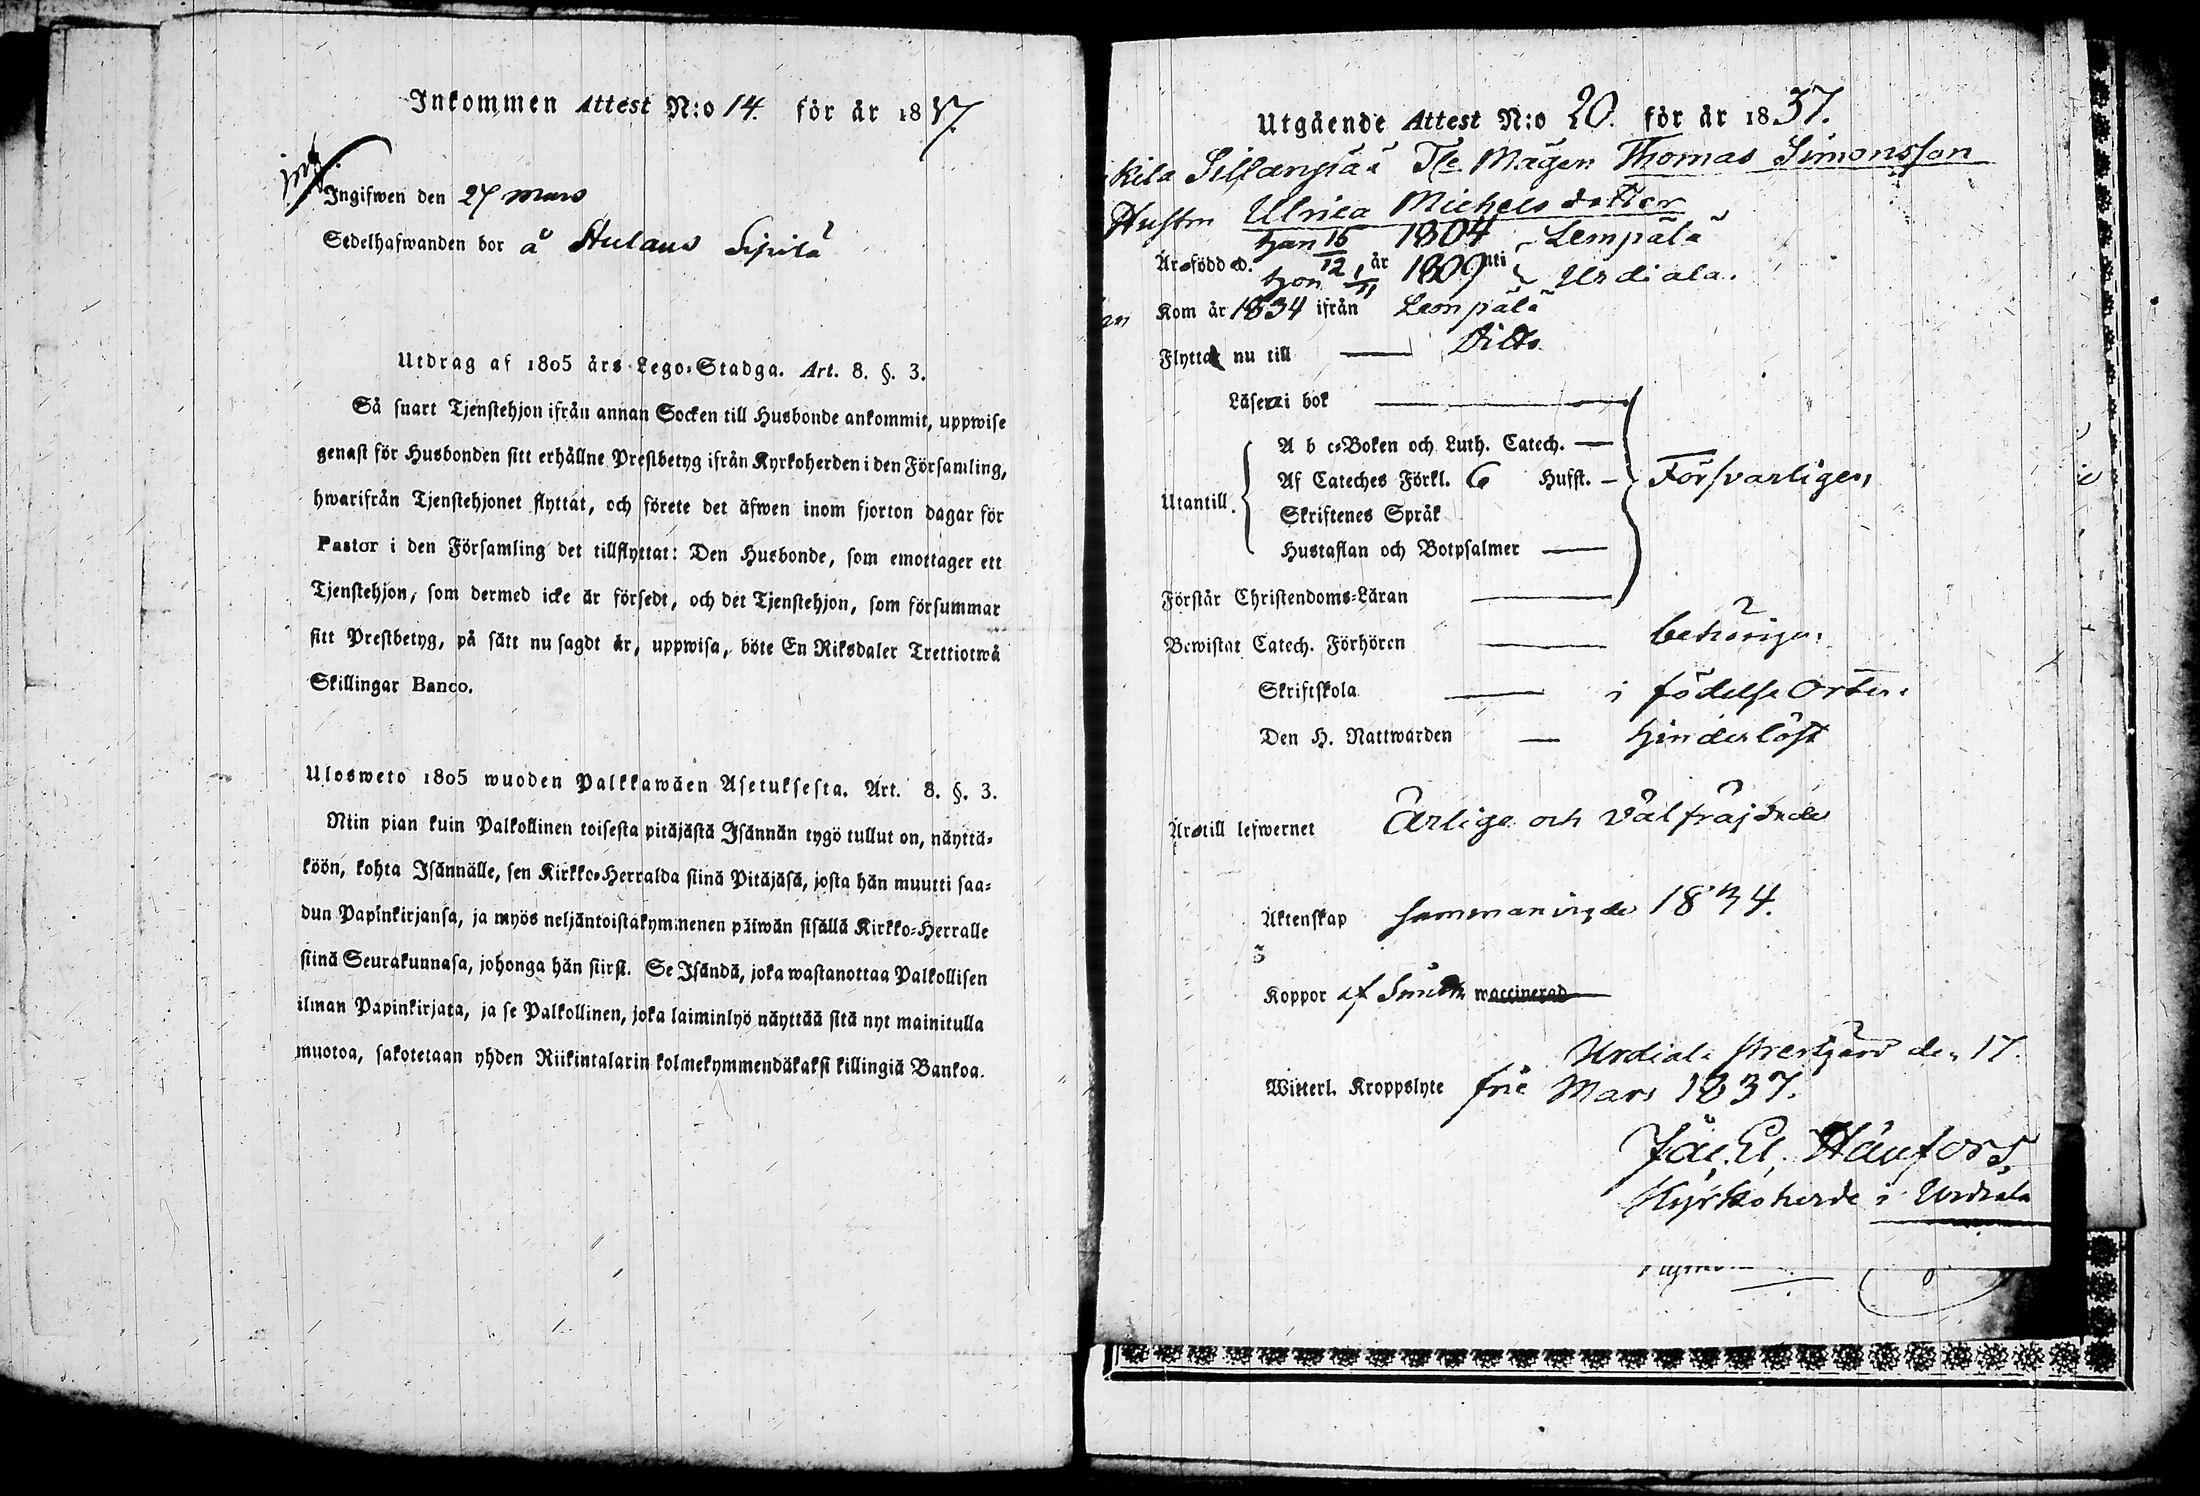 Inkommen Attest N:o 14. för år 1837.
Ingifwen den 27 Mars
Sedelhafwanden bor å Kulans Sipilä
Utdrag af 1805 års Lego-Stadga. Art. 8. §. 3.
Så snart Tjenstehjon ifrån annan Socken till Husbonde ankommit, uppwise
genast för Husbonden sitt erhållne Prestbetyg ifrån Kyrkoherden i den Församling,
hwarifrån Tjenstehjonet flyttat, och förete det äfwen inom fjorton dagar för
Pastor i den Församling det tillflyttat: Den Husbonde, som emottager ett
Tjenstehjon, som dermed icke är försedt, och det Tjenstehjon, som försummar
sitt Prestbetyg, på sätt nu sagdt är, uppwisa, böte En Riksdaler Trettiotwå
Skillingar Banco.
Ulosweto 1805 wuoden Palkkawäen Asetuksesta. Art. 8. §. 3.
Niin pian kuin Palkollinen toisesta pitäjästä Isännän tygö tullut on, näyttä-
köön, kohta Isännälle, sen Kirkko-Herralda siinä Pitäjäsä, josta hän muutti saa-
dun Papinkirjansa, ja myös neljäntoistakymmenen päiwän sisällä Kirkko-Herralle
siinä Seurakunnasa, johonga hän siirst. Se Isändä, joka wastanottaa Palkollisen
ilman Papinkirjata, ja se Palkollinen, joka laiminlyö näyttää sitä nyt mainitulla
muotoa, sakotetaan yhden Riikintalarin kolmekymmendäkaksi killingiä Bankoa.
Utgående Attest N:o 20. för år 1837.
kila Sillanpää Mågen Thomas Simonsson
Hustru Ulrica Michelsdotter
han 16/12 1804 Lempälä
Är född d. år
hon 1/11 1809 Urdiala.
Kom år 1834 ifrån Lempälä
Flyttar nu till Dito
Läser i bok
A b c-Boken och Luth. Catech.
Af Cateches Förkl. 6 Hufst. Försvarligen
Utantill.
Skriftenes Språk
Hustaflan och Botpsalmer
Förstår Christendoms-Läran
Bewistat Catech. Förhören behörigen
Skriftskola i födelse Orten
Den H. Nattwarden hinderlöst
Är till lefwernet Ärlige och välfräjdade
Äktenskap sammanvigde 1834.
Koppor af waccinerad
Urdiala Prestgård den 17.
Witterl. Kroppslyte frie Mars 1837.
Kyrkoherde i Urdiala